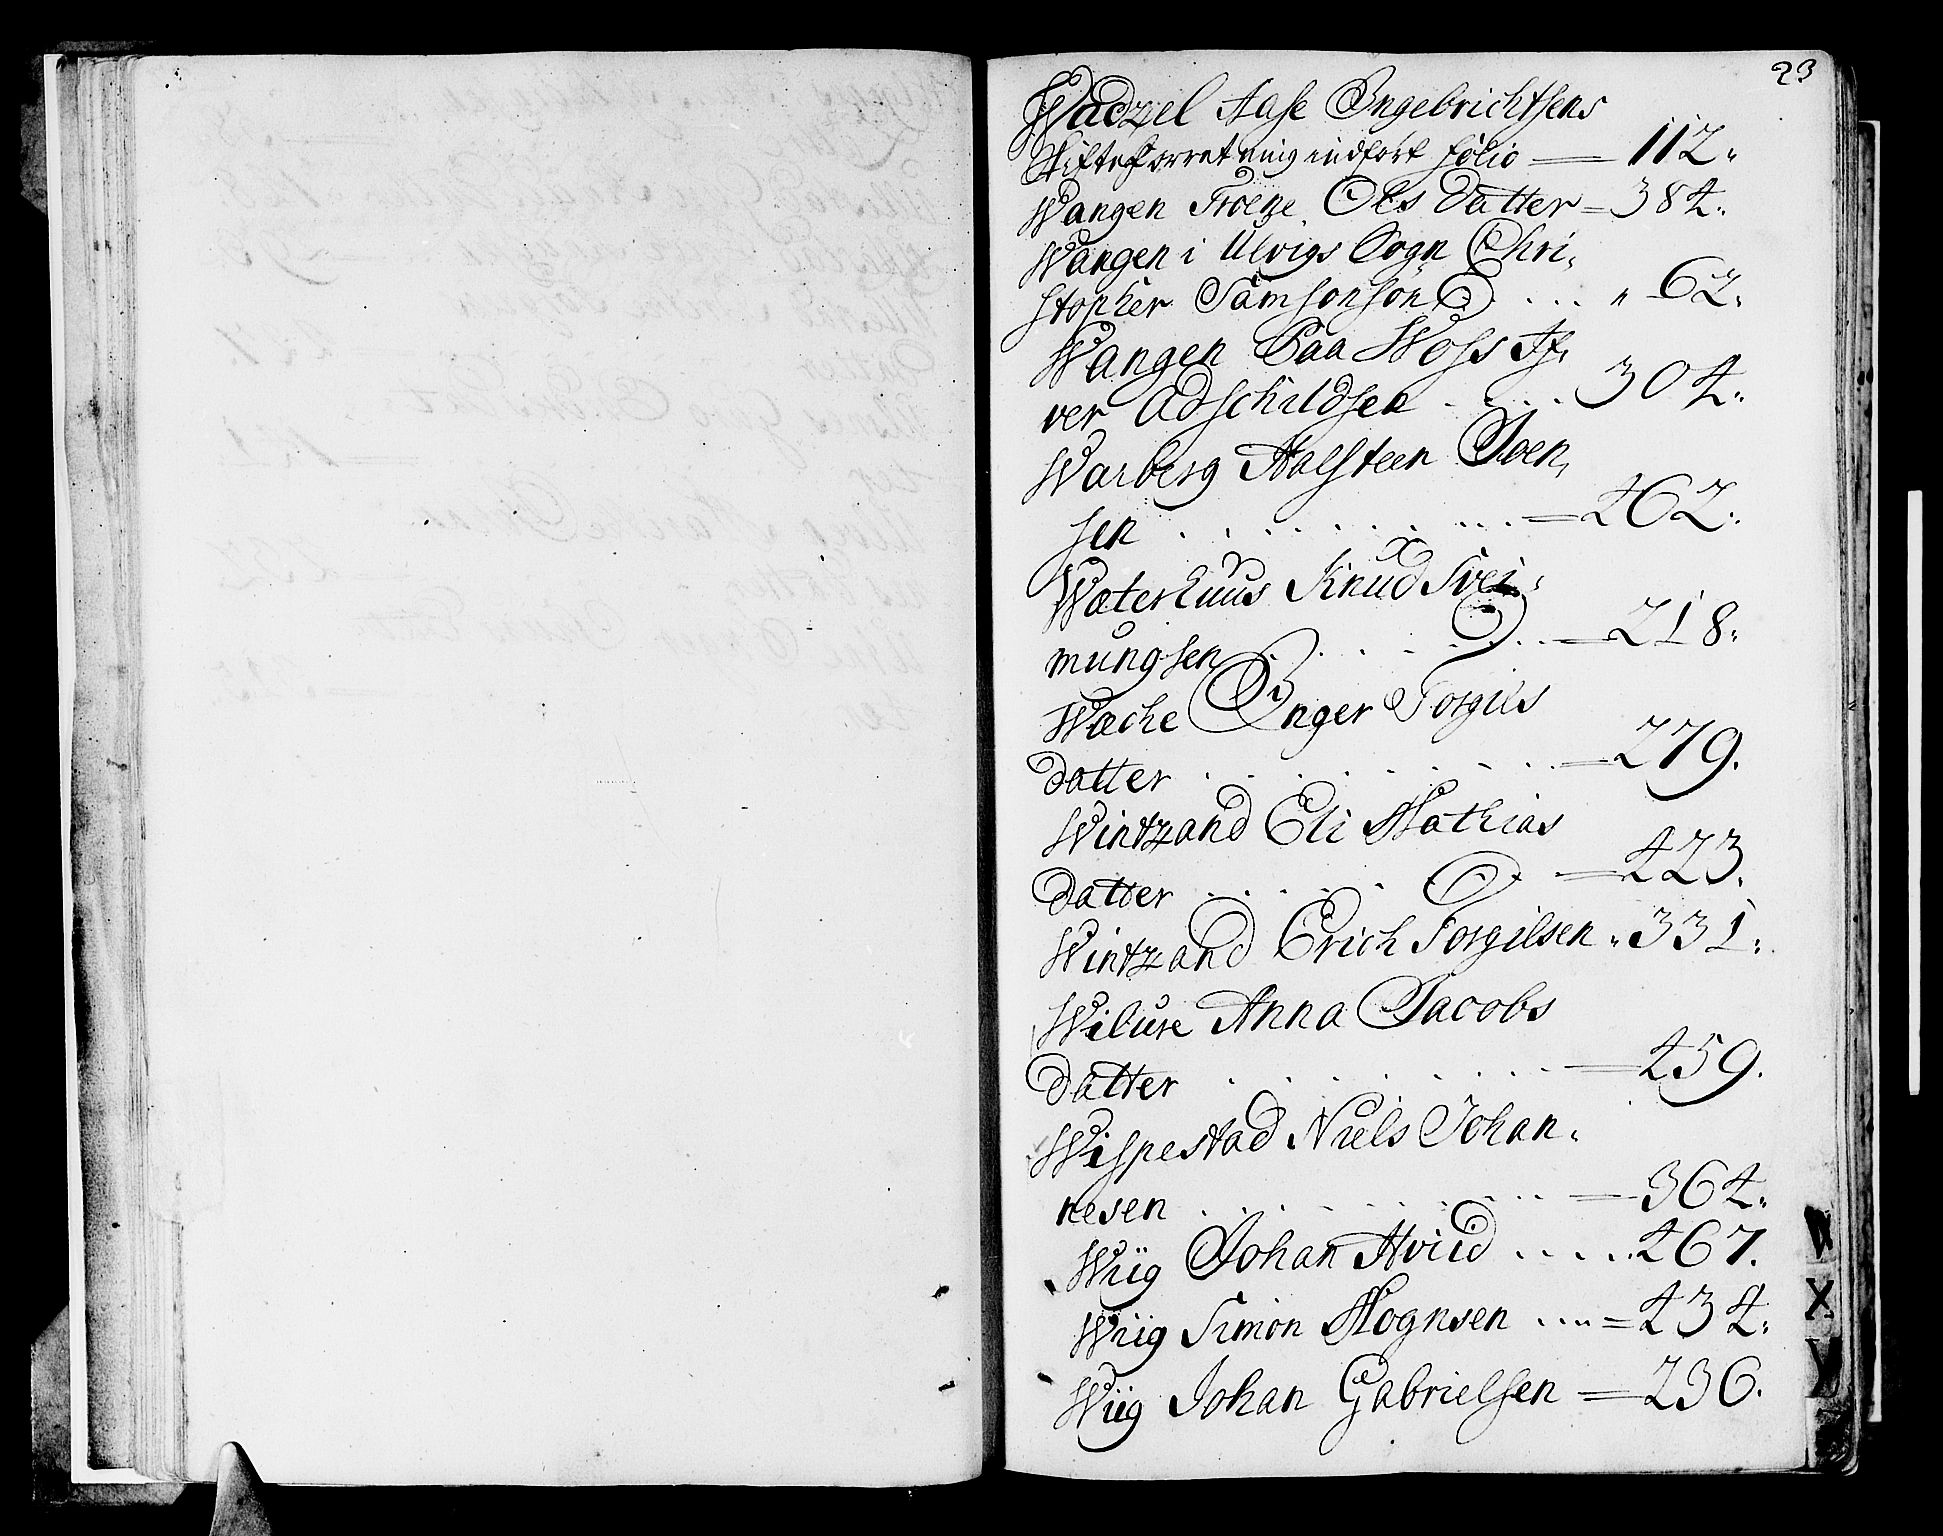 23
Wadzel Aase Ingebrichtsens
Skifteforretning indført folio — 112.
Wangen Troeze Ols Datter = 384.
Wangen i Ulvigs Sogn Chri,
stopher Samsonson ... " 62.
Wangen Paa Woss If,
ver Adschildsen .... 304.
Warberg Halsteen Joen,
sen ........ = 262.
Wæterhuus Knud Svei,
mungsen ..... = 218.
Wæche Inger Torgils
datter ........ = 279.
Wintzand Eli Mathias
datter ...... = 423.
Wintzand Erich Torgilsen " 331.
Wilure Anna Jacobs
datter ........ = 459.
Wispestad Niels Johan,
nesen ........ = 364.
Wiig Johan Hviid ..... 467.
Wiig Simon Mognsen .... = 434.
Wiig Johan Gabrielsen = 236.
W
X
Y